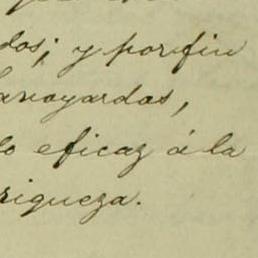 dos; y por fin
avoyardos,
lo eficaz á la
riqueza.